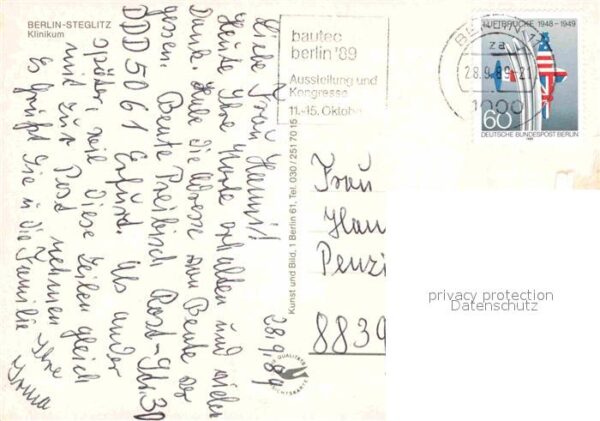 BERLIN-STEGLITZ
Klinikum
28.9.89
Liebe Frau
Heute Ihre Karte erhalten und vielen
Dank. Habe die Adresse von Beate
gessen. Beate
DDD 5061 Erfurt.
später, weil diese Zeilen gleich
mit zur Post nehmen
Es grüßt Sie u die Familie Ihre
Irma
Kunst und Bild, 1 Berlin 61, Tel. 030/251 70 15
bautec
berlin '89
Ausstellung und
Kongresse
11.-15. Oktobe
BERLIN
za
28.9.89-21
1000
LUFTBRÜCKE 1948-1949
60
DEUTSCHE BUNDESPOST BERLIN
Frau
Han
Penzi
8839
QUALITÄTS
privacy protection
Datenschutz